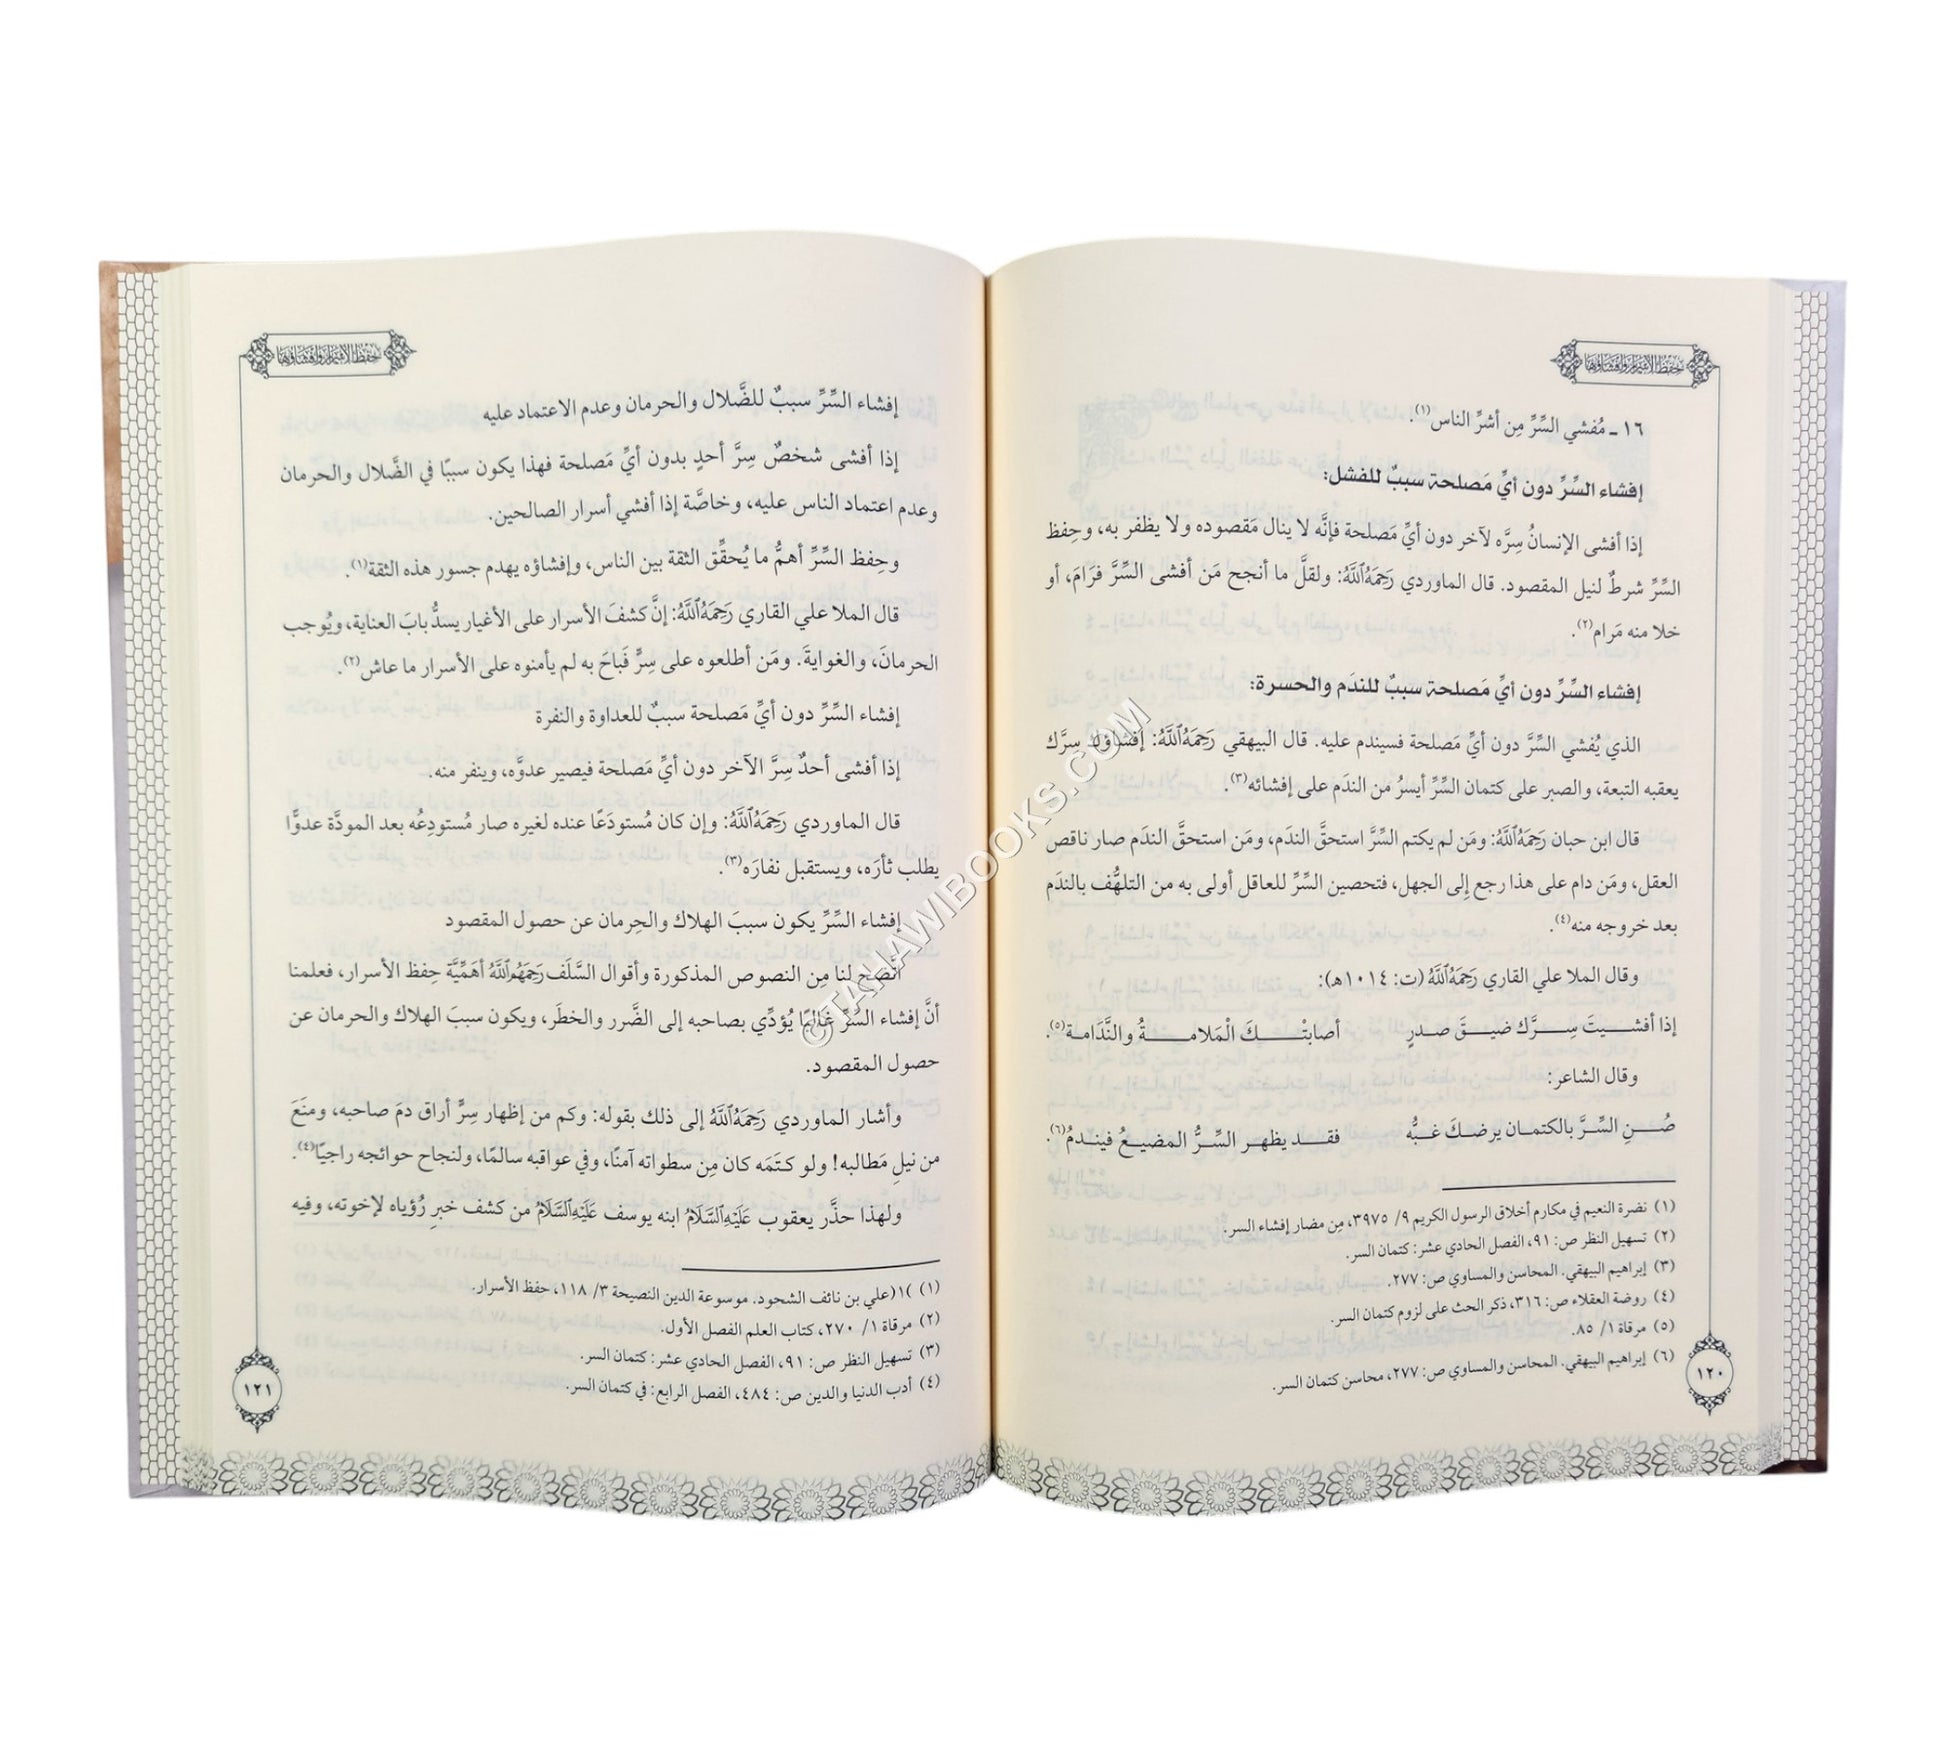 حِفْظُ الْأَسْرَارِ وَإِفْشَاؤُهَا
١٦ ـ مُفشي السِّرِّ مِن أشرِّ الناس(١).
إفشاء السِّرِّ دون أيِّ مَصلحة سببٌ للفشل:
إذا أفشى الإنسانُ سِرَّه لآخر دون أيِّ مَصلحة فإنَّه لا ينال مَقصوده ولا يظفر به، وحِفظ
السِّرِّ شرطٌ لنيل المقصود. قال الماوردي رَحِمَهُ اللَّهُ: ولقلَّ ما أنجح مَن أفشى السِّرَّ فرَامَ، أو
خلا منه مَرام(٢).
إفشاء السِّرِّ دون أيِّ مَصلحة سببٌ للندَم والحسرة:
الذي يُفشي السِّرَّ دون أيِّ مَصلحة فسيندم عليه. قال البيهقي رَحِمَهُ اللَّهُ: إفشاؤك سِرَّك
يعقبه التبعة، والصبر على كتمان السِّرِّ أيسرُ مَن الندَم على إفشائه(٣).
قال ابن حبان رَحِمَهُ اللَّهُ: ومَن لم يكتم السِّرَّ استحقَّ الندَم، ومَن استحقَّ الندَم صار ناقص
العقل، ومَن دام على هذا رجع إلى الجهل، فتحصين السِّرِّ للعاقل أولى به من التلهُّف بالندَم
بعد خروجه منه(٤).
وقال الملا علي القاري رَحِمَهُ اللَّهُ (ت: ١٠١٤هـ):
إذا أفشـيتَ سِـرَّك ضيـقَ صـدرٍ أصابتْـكَ الْمَلامـةُ والنَّدَامة(٥).
وقال الشاعر:
صُـنِ السِّـرَّ بالكتمـان يرضـكَ غـبُّه فقـد يظهـر السِّـرُّ المضيـعُ فينـدمُ(٦).
(١) نضرة النعيم في مكارم أخلاق الرسول الكريم ٩/ ٣٩٧٥، مِن مضار إفشاء السر.
(٢) تسهيل النظر ص: ٩١، الفصل الحادي عشر: كتمان السر.
(٣) إبراهيم البيهقي. المحاسن والمساوي ص: ٢٧٧.
(٤) روضة العقلاء ص: ٣١٦، ذكر الحث على لزوم كتمان السر.
(٥) مرقاة ١/ ٨٥.
(٦) إبراهيم البيهقي. المحاسن والمساوي ص: ٢٧٧، محاسن كتمان السر.
١٢٠
حِفْظُ الْأَسْرَارِ وَإِفْشَاؤُهَا
إفشاء السِّرِّ سببٌ للضَّلال والحرمان وعدم الاعتماد عليه
إذا أفشى شخصٌ سِرَّ أحدٍ بدون أيِّ مَصلحة فهذا يكون سببًا في الضَّلال والحرمان
وعدم اعتماد الناس عليه، وخاصَّة إذا أفشي أسرار الصالحين.
وحِفظ السِّرِّ أهمُّ ما يُحقِّق الثقة بين الناس، وإفشاؤه يهدم جسور هذه الثقة(١).
قال الملا علي القاري رَحِمَهُ اللَّهُ: إنَّ كشفَ الأسرار على الأغيار يسدُّ بابَ العناية، ويُوجب
الحرمانَ، والغوايةَ. ومَن أطلعوه على سِرٍّ فَباحَ به لم يأمنوه على الأسرار ما عاش(٢).
إفشاء السِّرِّ دون أيِّ مَصلحة سببٌ للعداوة والنفرة
إذا أفشى أحدٌ سِرَّ الآخر دون أيِّ مَصلحة فيصير عدوَّه، وينفر منه.
قال الماوردي رَحِمَهُ اللَّهُ: وإن كان مُستودَعًا عنده لغيره صار مُستودِعُه بعد المودَّة عدوًّا
يطلب ثأرَه، ويستقبل نفارَه(٣).
إفشاء السِّرِّ يكون سببَ الهلاك والحِرمان عن حصول المقصود
اتَّضح لنا مِن النصوص المذكورة وأقوال السَّلَف رَحِمَهُمُ اللَّهُ أهَمِّيَّة حِفظ الأسرار، فعلمنا
أنَّ إفشاء السِّرِّ غالبًا يُؤدِّي بصاحبه إلى الضَّرر والخطَر، ويكون سببَ الهلاك والحرمان عن
حصول المقصود.
وأشار الماوردي رَحِمَهُ اللَّهُ إلى ذلك بقوله: وكم من إظهار سِرٍّ أراق دمَ صاحبه، ومنَعَ
من نيلِ مَطالبه! ولو كـتَمَه كان مِن سطواته آمنًا، وفي عواقبه سالمًا، ولنجاح حوائجه راجيًا(٤).
ولهذا حذَّر يعقوب عَلَيْهِ السَّلَامُ ابنه يوسف عَلَيْهِ السَّلَامُ من كشف خبرِ رُؤياه لإخوته، وفيه
(١) ١((علي بن نائف الشحود. موسوعة الدين النصيحة ٣/ ١١٨، حفظ الأسرار.
(٢) مرقاة ١/ ٢٧٠، كتاب العلم الفصل الأول.
(٣) تسهيل النظر ص: ٩١، الفصل الحادي عشر: كتمان السر.
(٤) أدب الدنيا والدين ص: ٤٨٤، الفصل الرابع: في كتمان السر.
١٢١
© TAHAWIBOOKS.COM